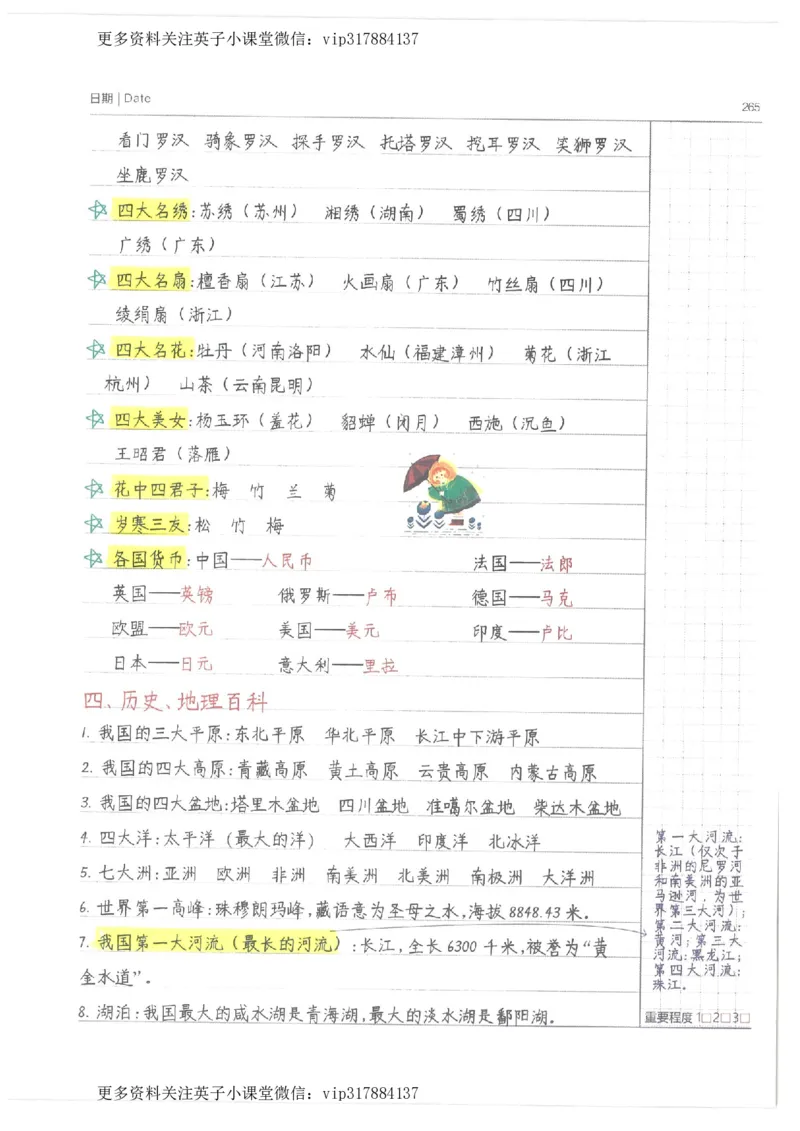 更多资料关注英子小课堂微信：vip317884137
日期 | Date
265
看门罗汉 骑象罗汉 探手罗汉 托塔罗汉 挖耳罗汉 笑狮罗汉
坐鹿罗汉
四大名绣:苏绣（苏州） 湘绣（湖南） 蜀绣（四川）
广绣（广东）
四大名扇:檀香扇（江苏） 火画扇（广东） 竹丝扇（四川）
绫绢扇（浙江）
四大名花:牡丹（河南洛阳） 水仙（福建漳州） 菊花（浙江
杭州） 山茶（云南昆明）
四大美女:杨玉环（羞花） 貂蝉（闭月） 西施（沉鱼）
王昭君（落雁）
花中四君子:梅 竹 兰 菊
岁寒三友:松 竹 梅
各国货币:中国——人民币 法国——法郎
英国——英镑 俄罗斯——卢布 德国——马克
欧盟——欧元 美国——美元 印度——卢比
日本——日元 意大利——里拉
四、历史、地理百科
1. 我国的三大平原:东北平原 华北平原 长江中下游平原
2. 我国的四大高原:青藏高原 黄土高原 云贵高原 内蒙古高原
3. 我国的四大盆地:塔里木盆地 四川盆地 准噶尔盆地 柴达木盆地
4. 四大洋:太平洋（最大的洋） 大西洋 印度洋 北冰洋
5. 七大洲:亚洲 欧洲 非洲 南美洲 北美洲 南极洲 大洋洲
6. 世界第一高峰:珠穆朗玛峰,藏语意为圣母之水,海拔8848.43米.
7. 我国第一大河流（最长的河流）:长江,全长6300千米,被誉为“黄
金水道”.
8. 湖泊:我国最大的咸水湖是青海湖,最大的淡水湖是鄱阳湖.
第一大河流:
长江（仅次于
非洲的尼罗河
和南美洲的亚
马逊河,为世
界第三大河）;
第二大河流:
黄河;第三大
河流:黑龙江;
第四大河流:
珠江.
重要程度 1□2□3□
更多资料关注英子小课堂微信：vip317884137